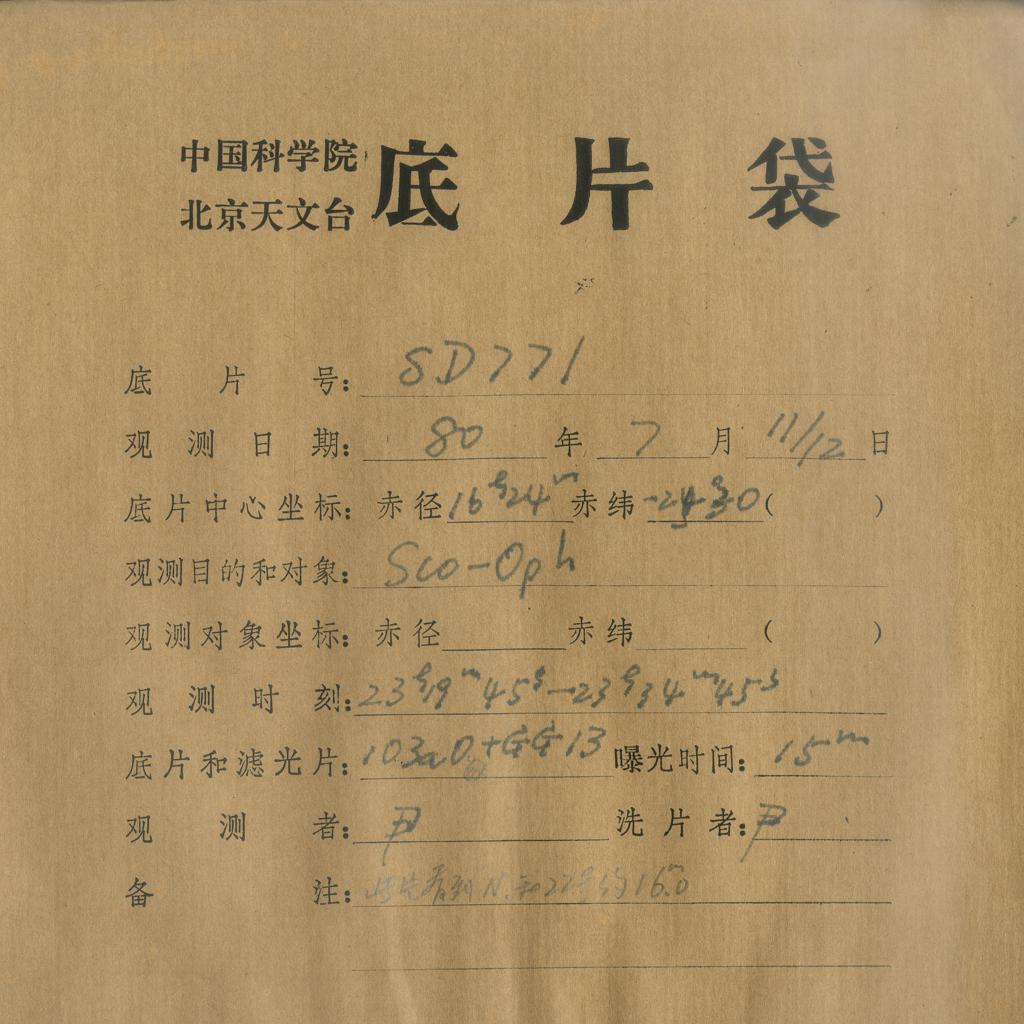 中国科学院
北京天文台
底片袋
底片号: SD771
观测日期: 80年 7月 11/12日
底片中心坐标: 赤径16h24m赤纬-24 30( )
观测目的和对象: Sco-Oph
观测对象坐标: 赤径 赤纬 ( )
观测时刻: 23h19m45s-23h34m45s
底片和滤光片: 103aO+GG13 曝光时间: 15m
观测者: 尹 洗片者: 尹
备注: 此片看到 和22号约16.m0